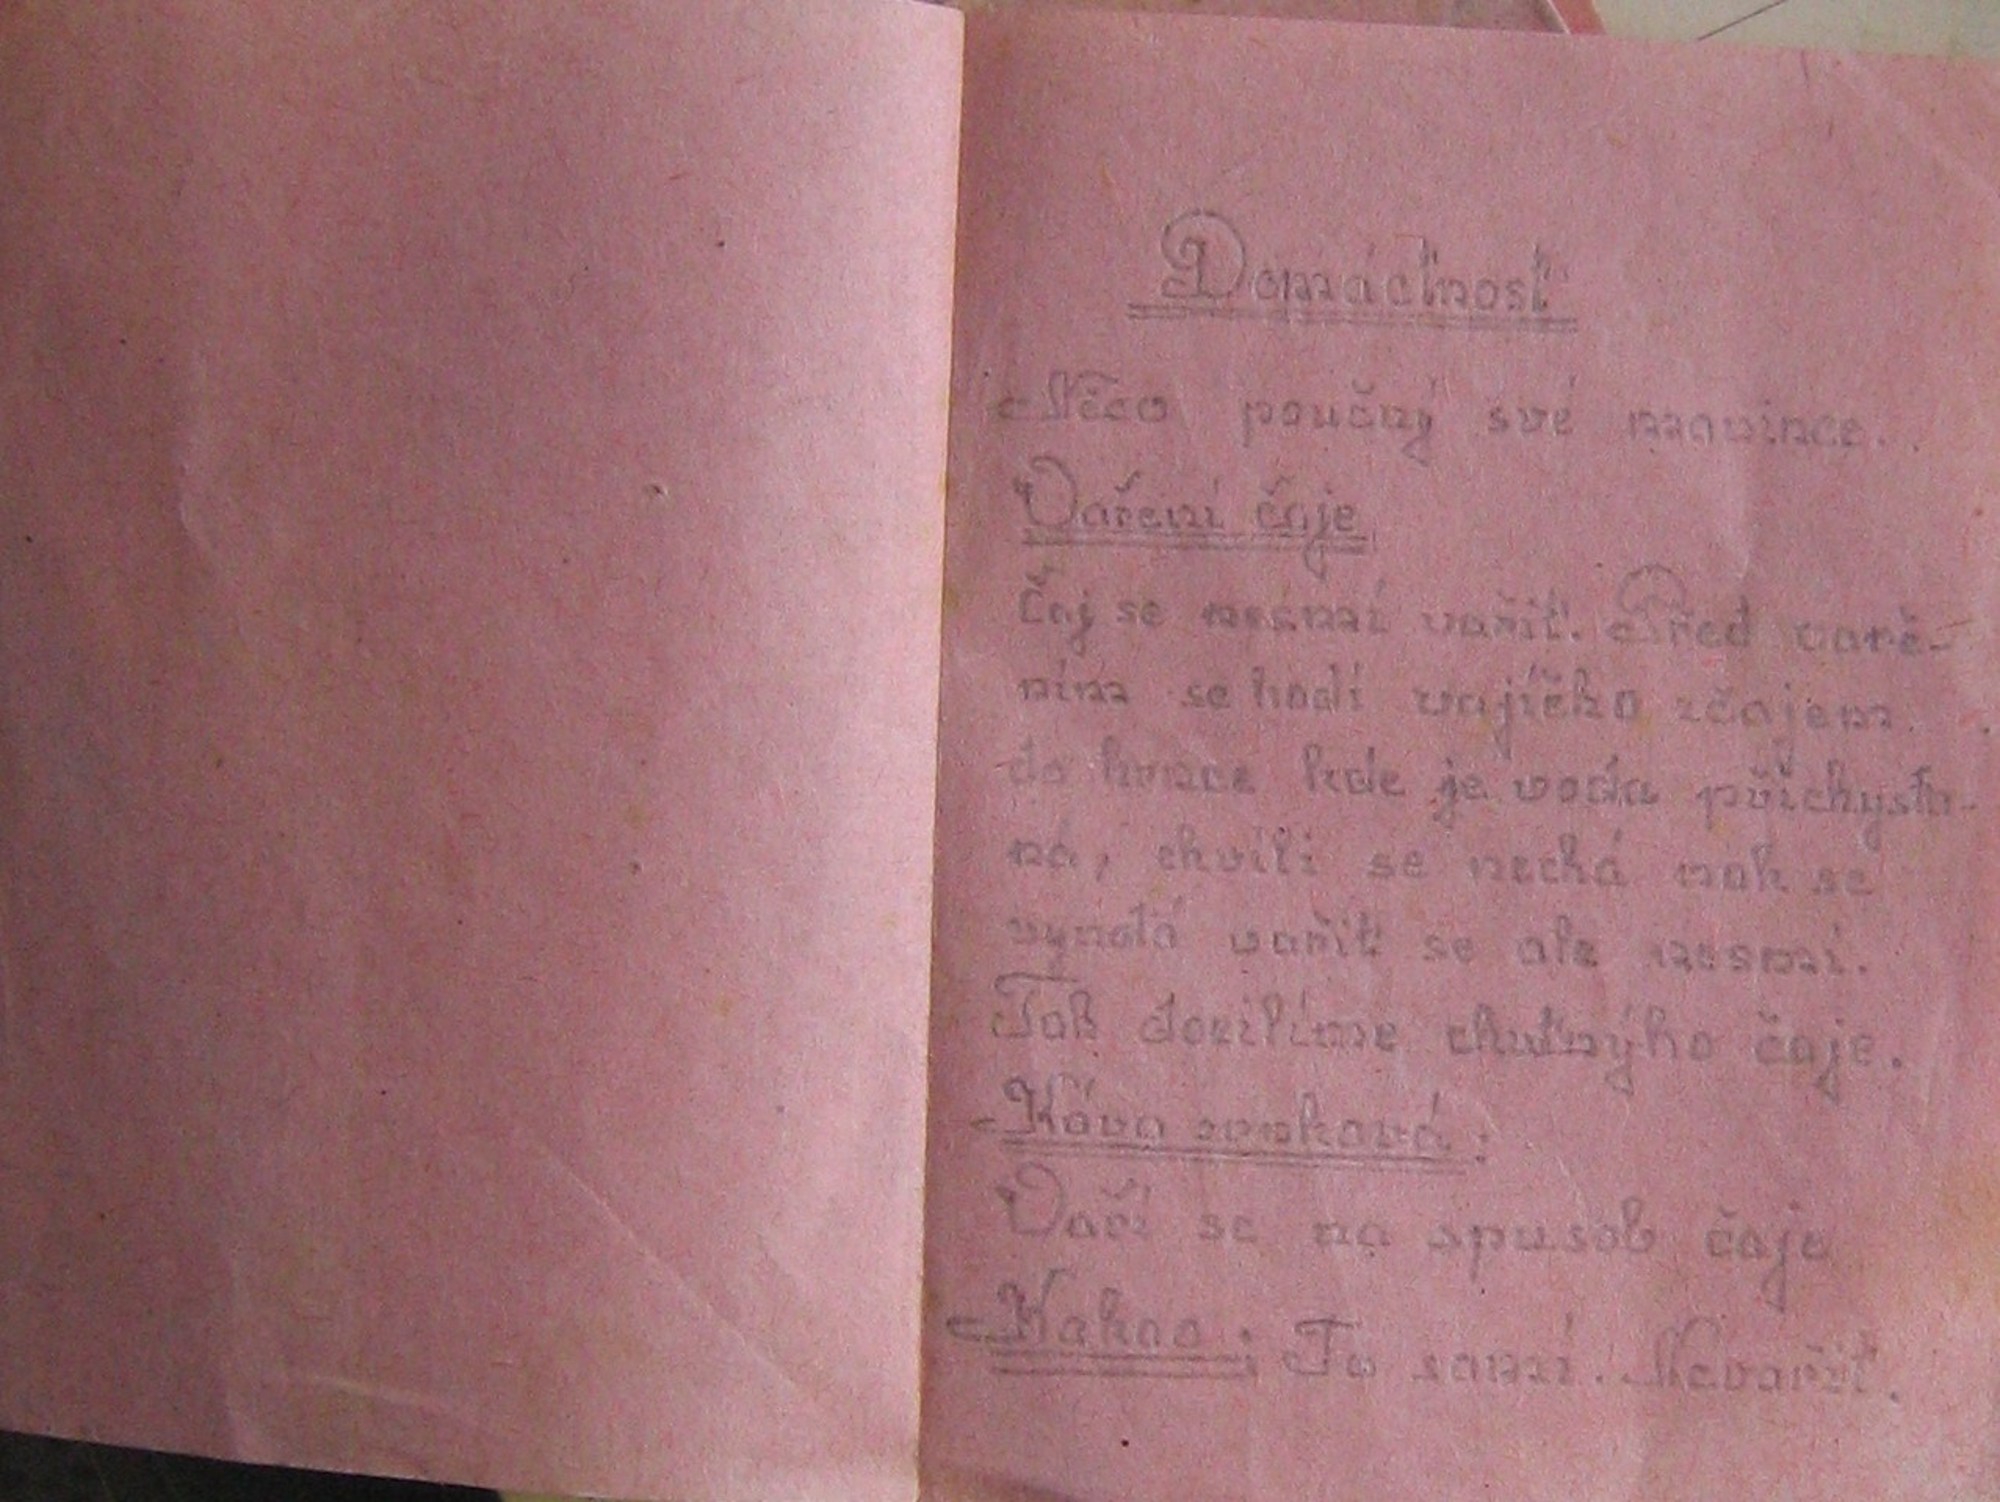 Domácťnosť
Něco poučný své novince.
Vaření čaje
Čaj se nesmí vařiť. Před vaře-
ním se hodí vajíčko zčajem
do hrnce kde je voda přichysta-
ná, chvíli se nechá pak se
vyndá vařit se ale nesmí.
Tak docílíme chuťnýho čaje.
Káva zrnková:
Vaří se na spusob čaje
Kakao: To samí. Nevařiť.